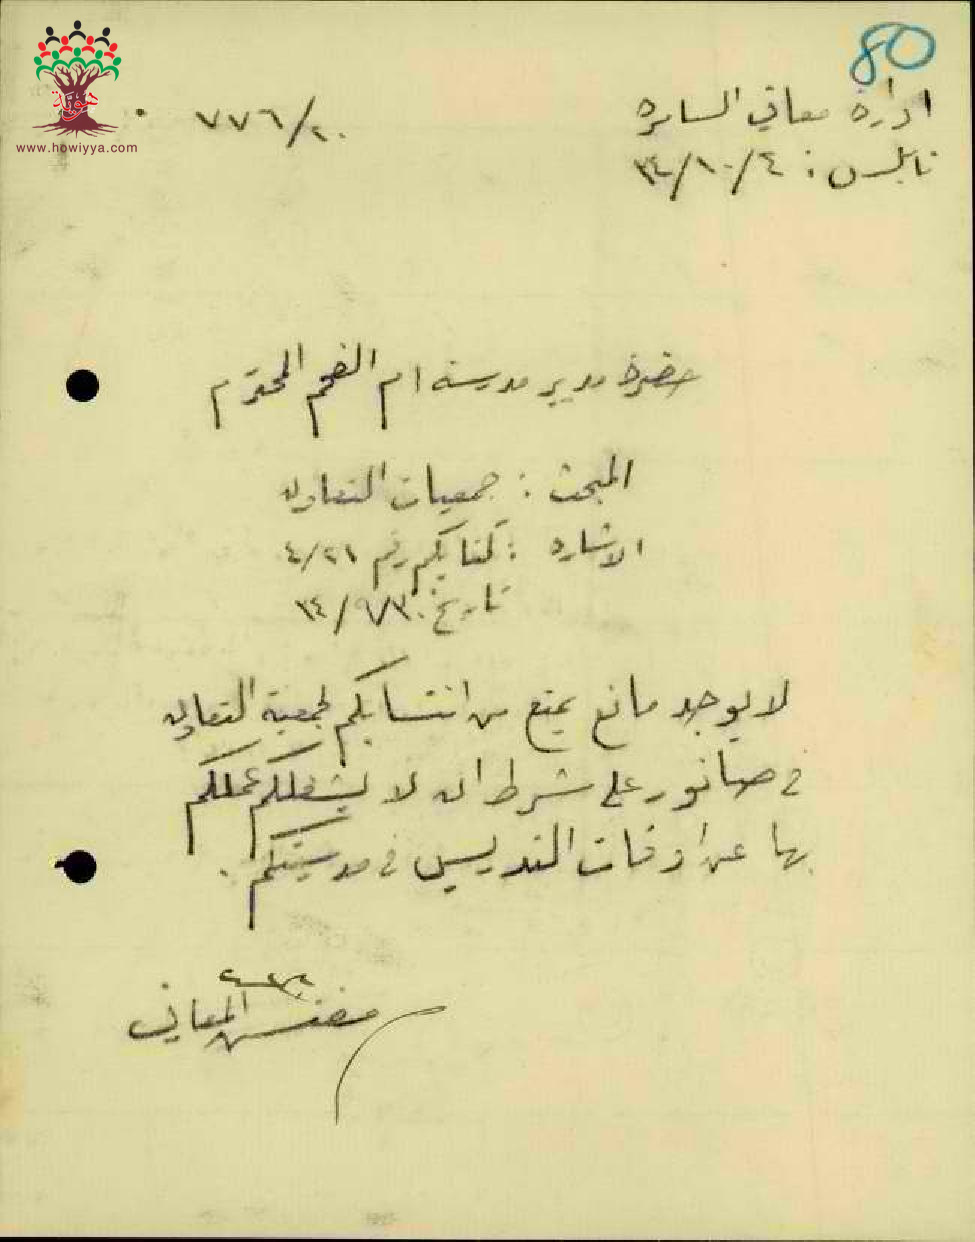 80
ادارة معاني السامره
٧٧٦/٢٠
نابلس : ٣٤/١٠/٤
هوية
www.howiyya.com
حضرة مدير مدرسة ام الفحم المحترم
المبحث : جمعيات التعاون
الاشاره : كتابكم رقم ٤/٢١
تاريخ ٣٤/٩/٣٠
لا يوجد مانع يمنع من انتسابكم لجمعية التعاون
في صانور على شرط ان لا يشغلكم عملكم
بها عن اوقات التدريس في مدرستكم .
مفتش المعاني